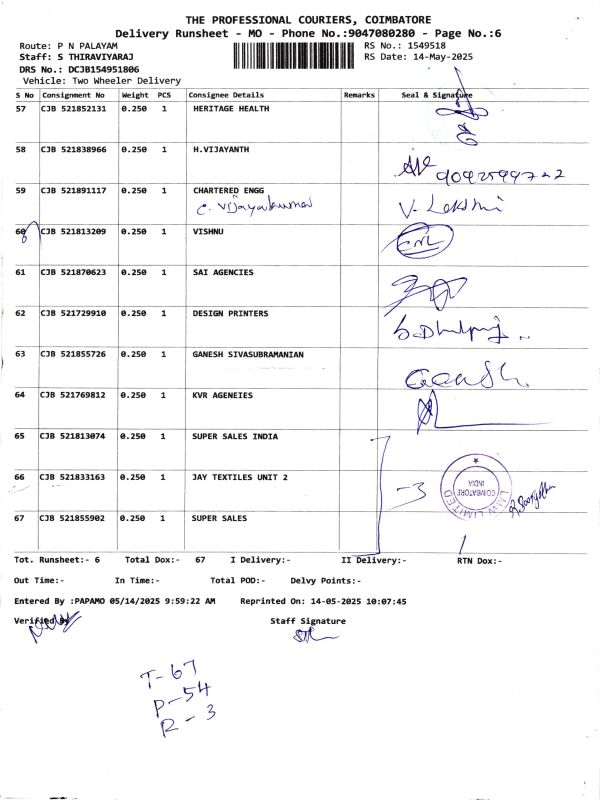 THE PROFESSIONAL COURIERS, COIMBATORE
Delivery Runsheet - MO - Phone No.:9047080280 - Page No.:6
Route: P N PALAYAM
RS No.: 1549518
Staff: S THIRAVIYARAJ
RS Date: 14-May-2025
DRS No.: DCJB154951806
Vehicle: Two Wheeler Delivery
S No Consignment No Weight PCS Consignee Details Remarks Seal & Signature
57 CJB 521852131 0.250 1 HERITAGE HEALTH
58 CJB 521838966 0.250 1 H.VIJAYANTH
59 CJB 521891117 0.250 1 CHARTERED ENGG
C. Vijayakumar V. Lakshmi
60 CJB 521813209 0.250 1 VISHNU
61 CJB 521870623 0.250 1 SAI AGENCIES
62 CJB 521729910 0.250 1 DESIGN PRINTERS
63 CJB 521855726 0.250 1 GANESH SIVASUBRAMANIAN
Ganesh.
64 CJB 521769812 0.250 1 KVR AGENEIES
65 CJB 521813074 0.250 1 SUPER SALES INDIA
66 CJB 521833163 0.250 1 JAY TEXTILES UNIT 2
-3
LMW LIMITED
COIMBATORE
INDIA
67 CJB 521855902 0.250 1 SUPER SALES
Tot. Runsheet:- 6 Total Dox:- 67 I Delivery:- II Delivery:- RTN Dox:-
Out Time:- In Time:- Total POD:- Delvy Points:-
Entered By :PAPAMO 05/14/2025 9:59:22 AM Reprinted On: 14-05-2025 10:07:45
Verified By Staff Signature
T-67
P-54
R-3